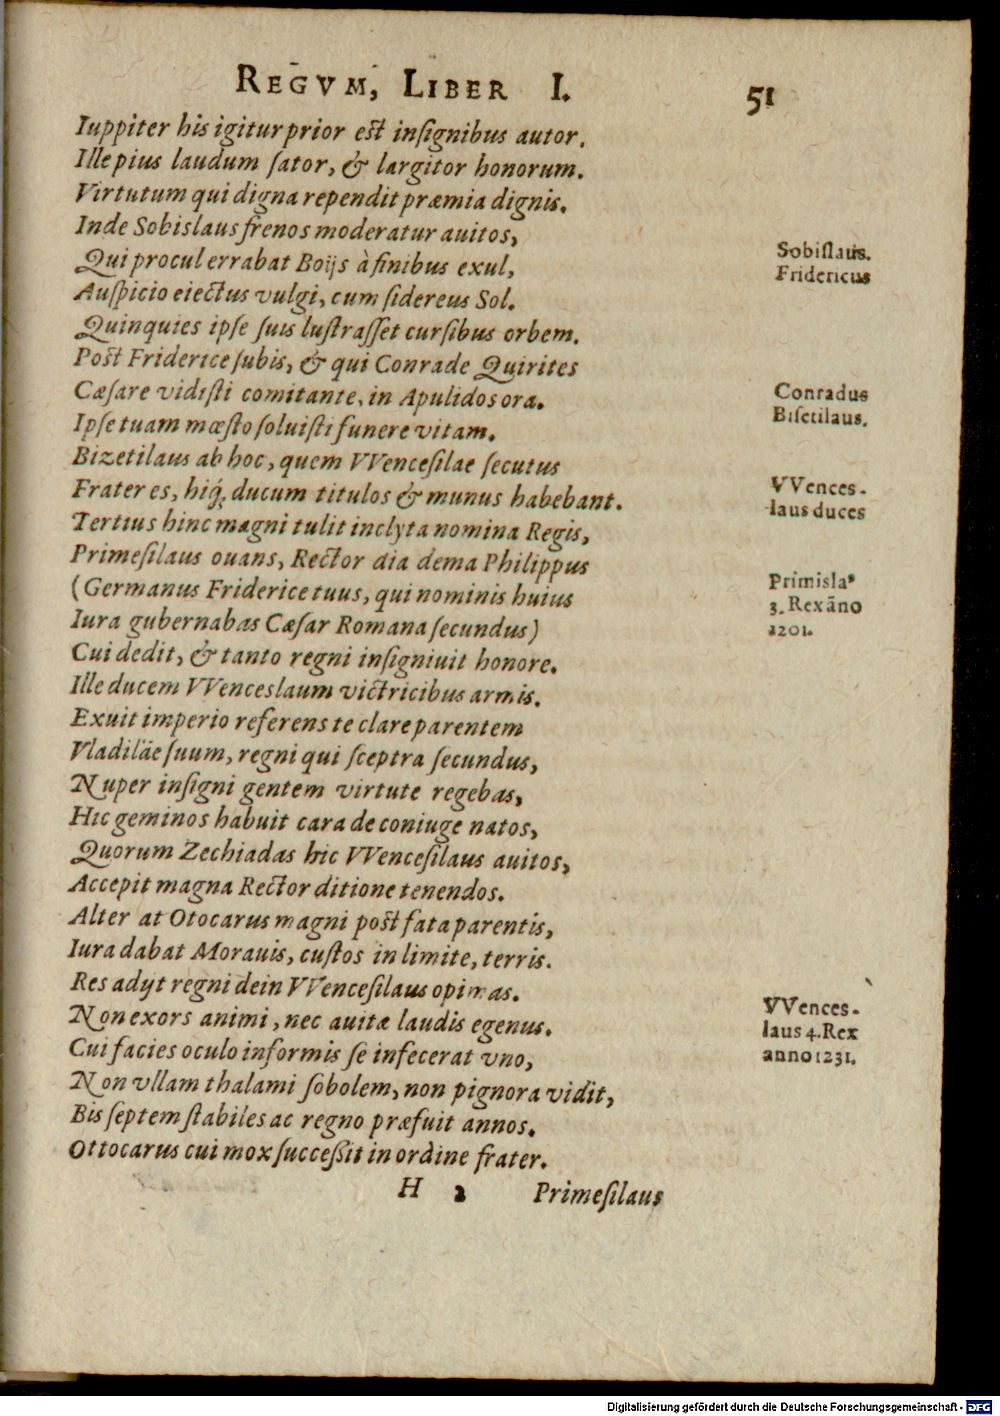 REGVM, LIBER I. 51
Iuppiter his igitur prior est insignibus autor.
Ille pius laudum sator, & largitor honorum.
Virtutum qui digna rependit præmia dignis.
Inde Sobislaus frenos moderatur auitos,
Qui procul errabat Boijs à finibus exul,
Sobislaus.
Fridericus
Auspicio eiectus vulgi, cum sidereus Sol.
Quinquies ipse suis lustrasset cursibus orbem.
Post Friderice subis, & qui Conrade Quirites
Cæsare vidisti comitante, in Apulidos ora.
Conradus
Bisetilaus.
Ipse tuam mœsto soluisti funere vitam.
Bizetilaus ab hoc, quem VVencesilae secutus
Frater es, hiq́; ducum titulos & munus habebant.
VVences-
laus duces
Tertius hinc magni tulit inclyta nomina Regis,
Primesilaus ouans, Rector dia dema Philippus
(Germanus Friderice tuus, qui nominis huius
Iura gubernabas Cæsar Romana secundus)
Primisla⁹
3. Rex āno
1201.
Cui dedit, & tanto regni insigniuit honore.
Ille ducem VVenceslaum victricibus armis.
Exuit imperio referens te clare parentem
Vladiläe suum, regni qui sceptra secundus,
Nuper insigni gentem virtute regebas,
Hic geminos habuit cara de coniuge natos,
Quorum Zechiadas hic VVencesilaus auitos,
Accepit magna Rector ditione tenendos.
Alter at Otocarus magni post fata parentis,
Iura dabat Morauis, custos in limite, terris.
Res adijt regni dein VVencesilaus opimas.
Non exors animi, nec auitæ laudis egenus.
VVences-
laus 4. Rex
anno 1231.
Cui facies oculo informis se infecerat vno,
Non vllam thalami sobolem, non pignora vidit,
Bis septem stabiles ac regno præfuit annos.
Ottocarus cui mox successit in ordine frater.
H 2 Primesilaus
Digitalisierung gefördert durch die Deutsche Forschungsgemeinschaft - DFG